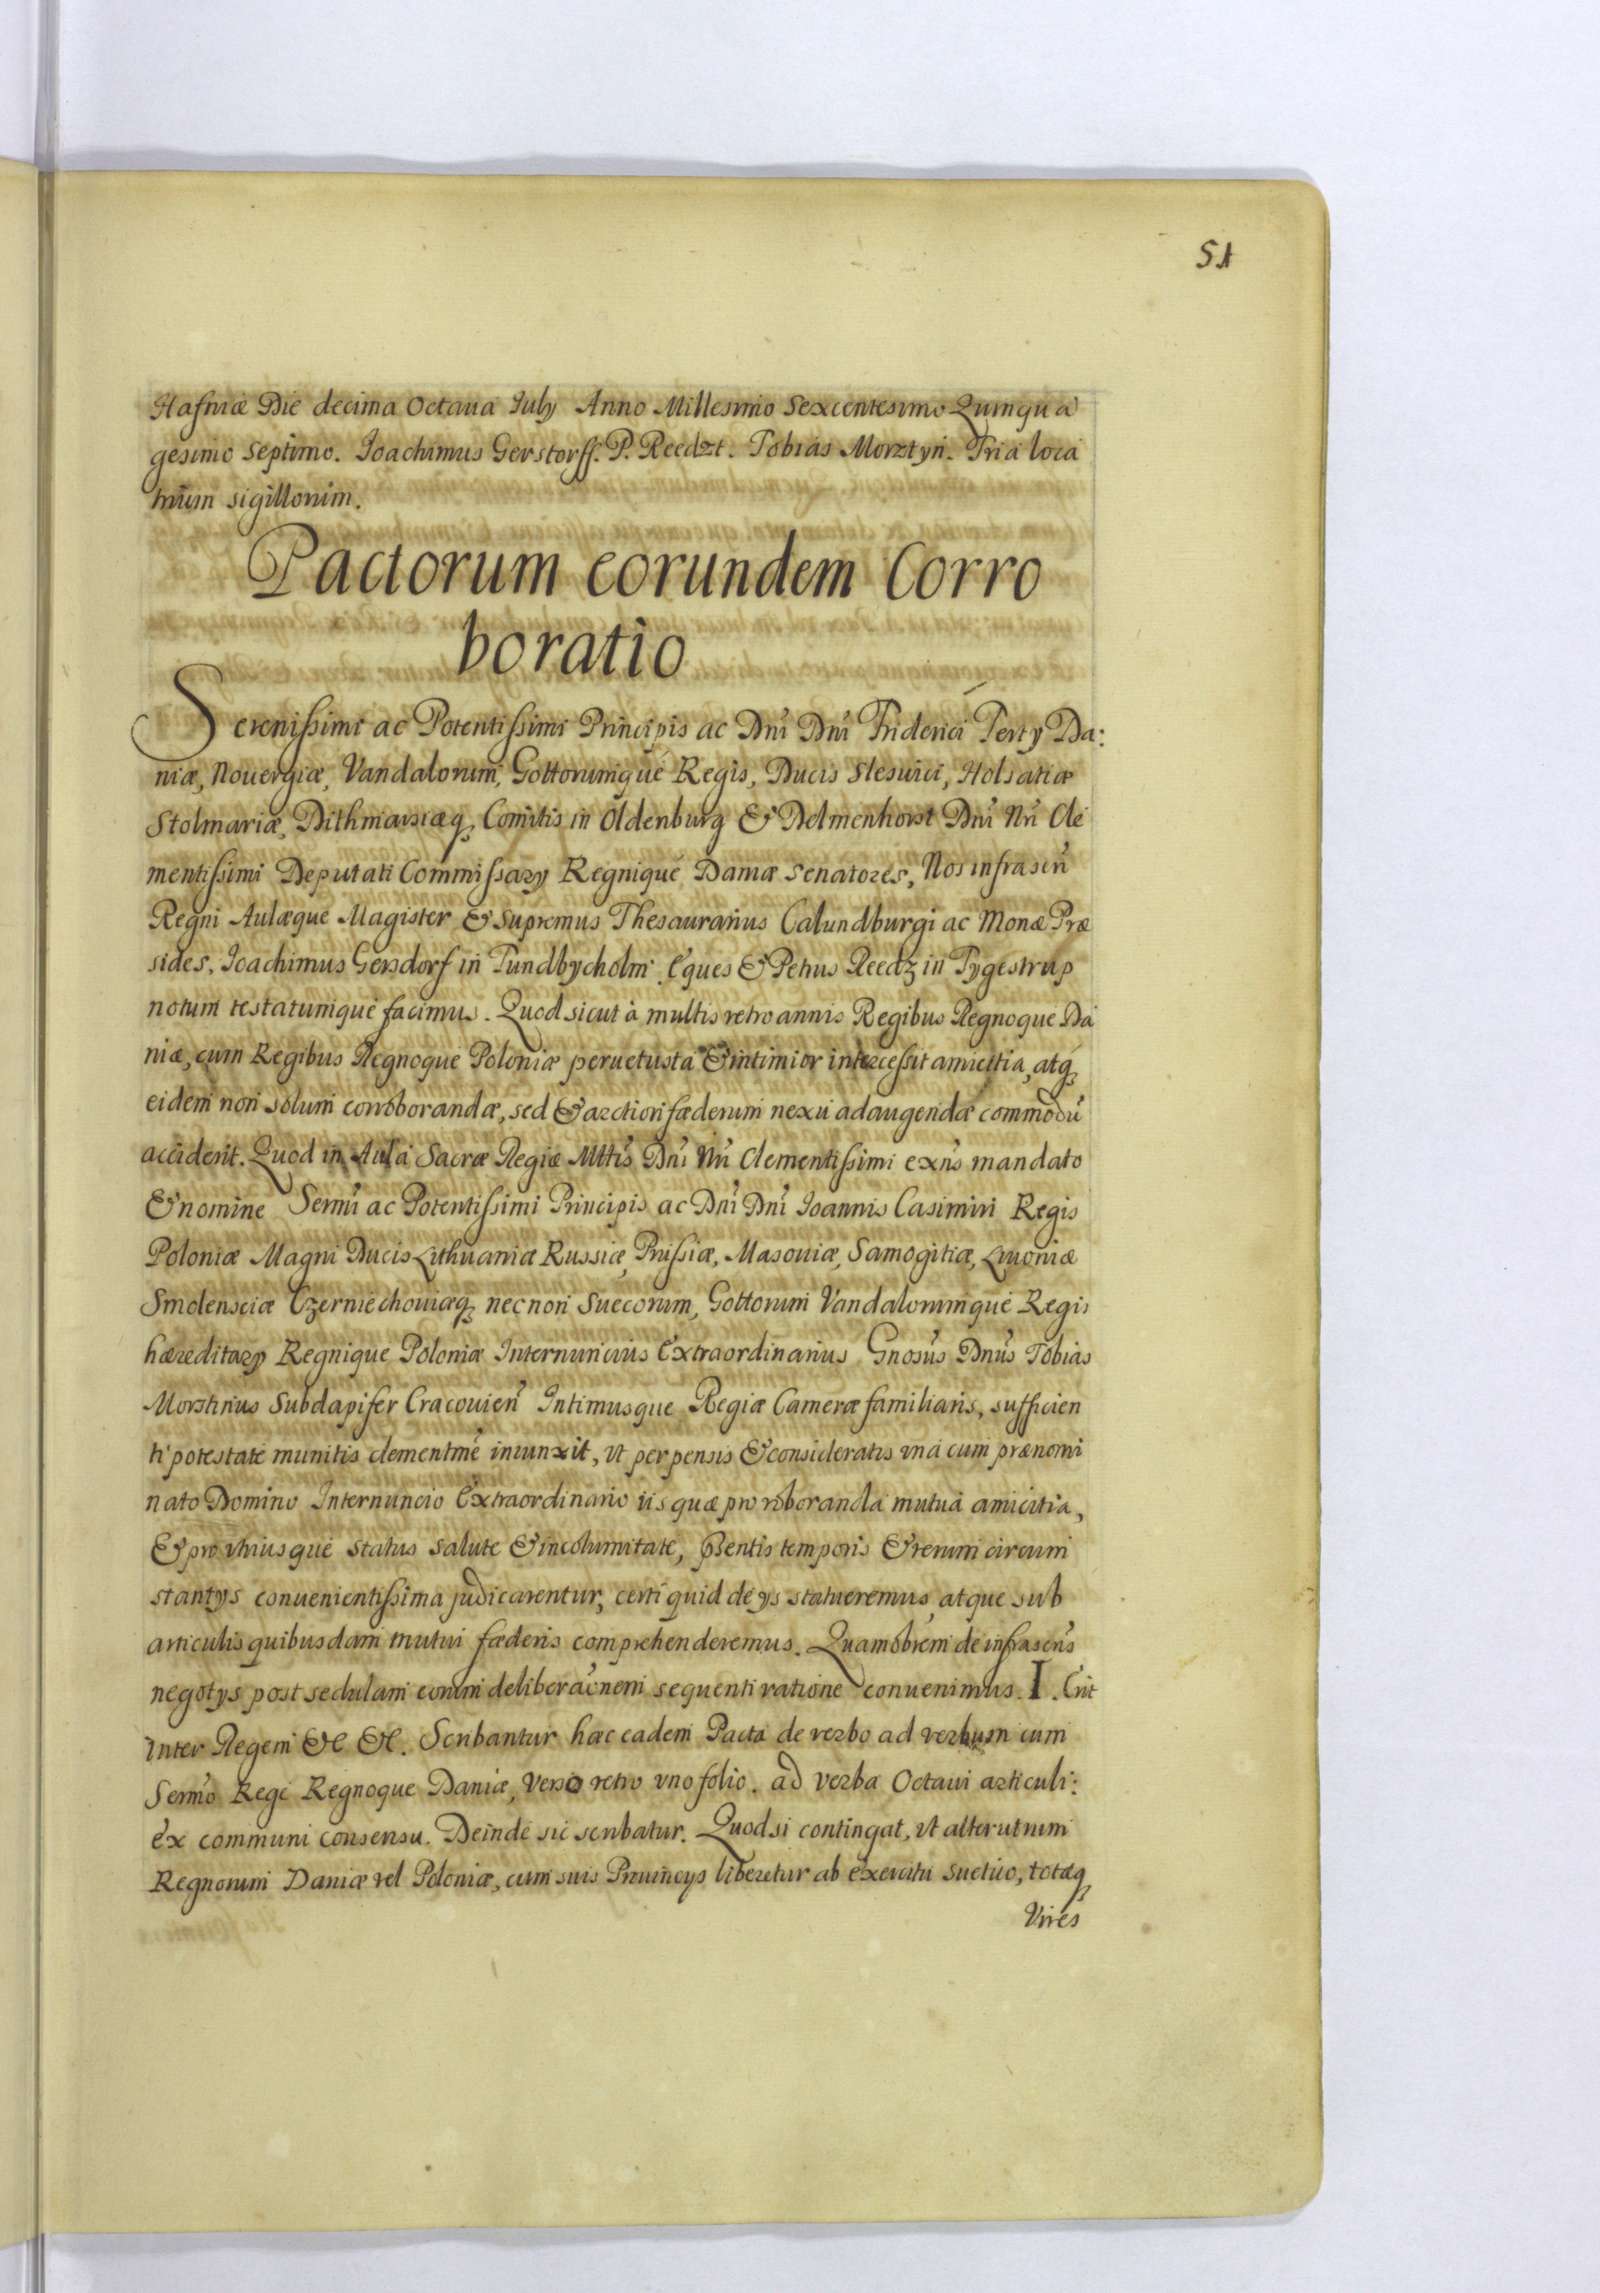 51
Hafniæ Die decima Octaua July Anno Millesimo Sexcentesimo Quinqua
gesimo septimo. Ioachimus Gerstorff. P. Reedzt. Tobias Morztyn. Tria loca
trium sigillorum.
Pactorum eorundem Corro
boratio
Serenissimi ac Potentissimi Principis ac Dnī Dnī Friderici Terty Da:
niæ, Nouergiæ, Vandalorum, Gottorumque Regis, Ducis Slesuici, Holsatiæ
Stolmariæ, Dithmarsiæq, Comitis in Oldenburg & Delmenhorst Dnī Nrī Cle
mentissimi Deputati Commissary Regnique Daniæ Senatores, Nos infrascrī
Regni Aulæque Magister & Supremus Thesaurarius Calundburgi ac Monæ Præ
sides, Ioachimus Gersdorf in Tundbycholm. Eques & Petrus Reedz in Tygestrup
notum testatumque facimus. Quod sicut à multis retro annis Regibus Regnoque Da
niæ, cum Regibus Regnoque Poloniæ peruetusta & intimior intercessit amicitia, atq,
eidem non solum corroborandæ, sed & arctiori fæderum nexu adaugendæ commodū
acciderit. Quod in Aula Sacræ Regiæ Mttīs Dnī Nrī Clementissimi exnīs mandato
& nomine Sermī ac Potentissimi Principis ac Dnī Dnī Ioannis Casimiri Regis
Poloniæ Magni Ducis Lithuaniæ Russiæ, Prussiæ, Masouiæ, Samogitiæ, Liuoniæ
Smolensciæ Czerniechouiæq, necnon Suecorum, Gottorum Vandalorumque Regis
hæreditary Regnique Poloniæ Internuncius Extraordinarius Gnosūs Dnūs Tobias
Morstinus Subdapifer Cracouien̄ Intimusque Regiæ Cameræ familiaris, sufficien
ti potestate munitis clementmē iniunxit, vt perpensis & consideratis vna cum prænomi
nato Domino Internuncio Extraordinario iis quæ pro roboranda mutua amicitia,
& pro vtriusque status salute & incolumitate, pñtis temporis & rerum circum
stantys conuenientissima judicarentur, certi quid de ys statueremus, atque sub
articulis quibusdam mutui fæderis comprehenderemus. Quamobrem de infrascrīs
negotys post sedulam eorum deliberaōnem sequenti ratione conuenimus. I. Erit
inter Regem &c &c. Scribantur hæc eadem Pacta de verbo ad verbum cum
Sermō Rege Regnoque Daniæ, verso retro vno folio. ad verba Octaui articuli:
ex communi consensu. Deinde sic scribatur. Quod si contingat, vt alterutrum
Regnorum Daniæ vel Poloniæ, cum suis Prouincys liberetur ab exercitu Suetico, totæq
Vires